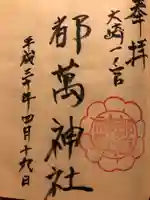 奉拝
大崎一之宮
都萬神社
平成三十年四月十九日